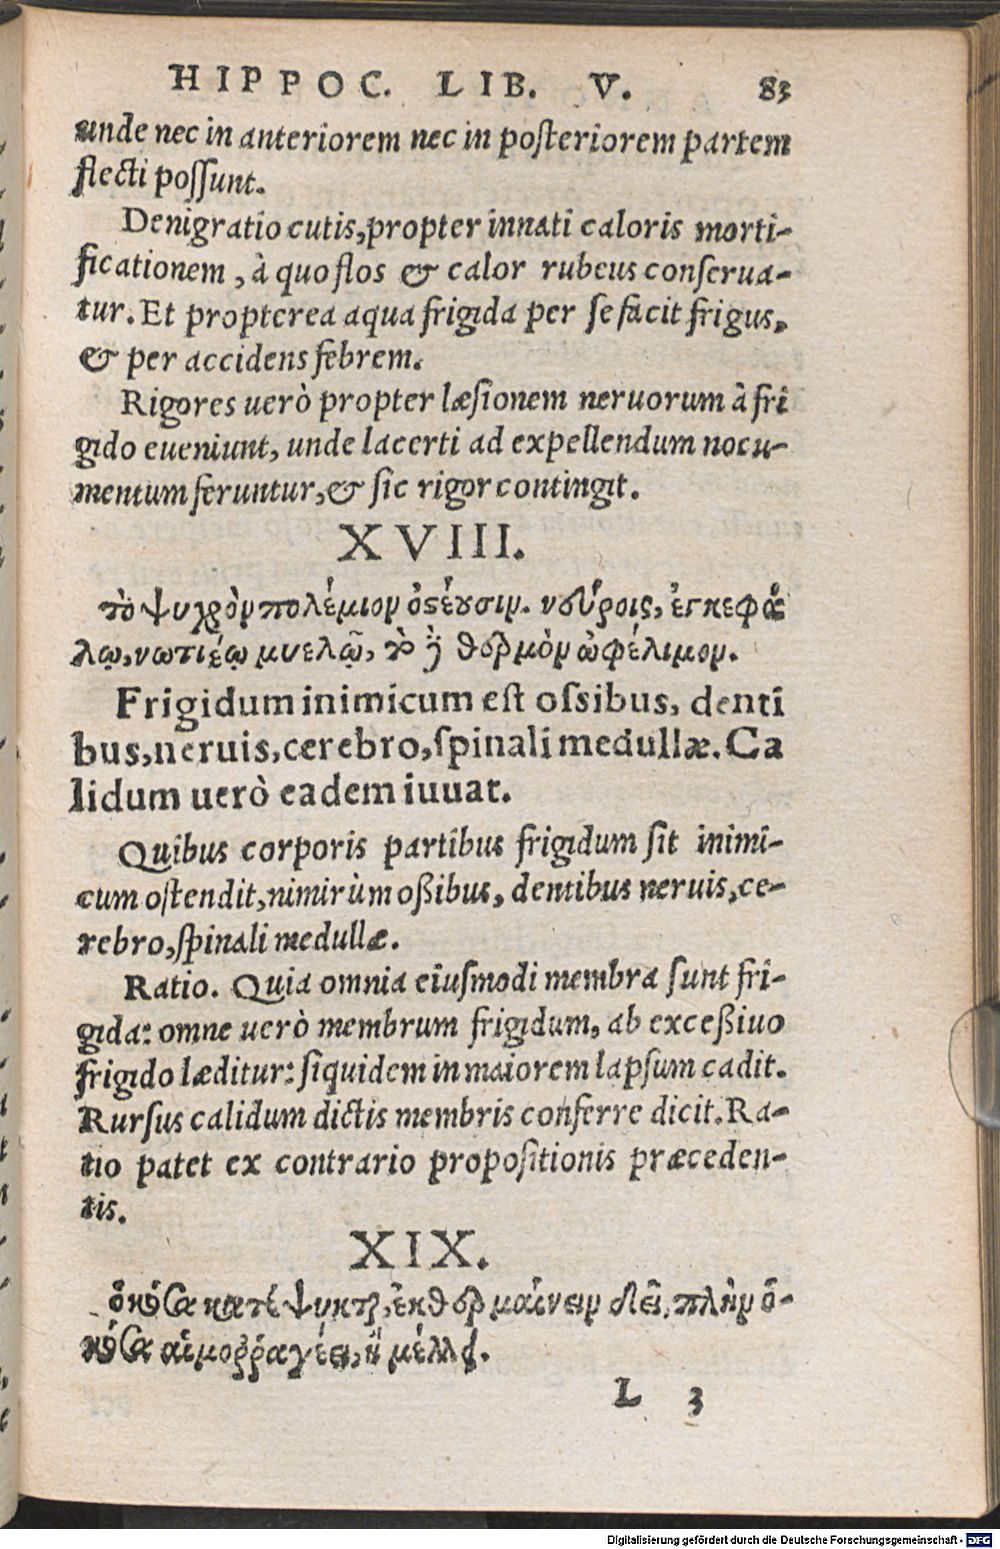 HIPPOC. LIB. V. 83
unde nec in anteriorem nec in posteriorem partem
flecti possunt.
Denigratio cutis, propter innati caloris morti-
ficationem, à quo flos & calor rubeus conserua-
tur. Et propterea aqua frigida per se facit frigus,
& per accidens febrem.
Rigores uerò propter læsionem neruorum à fri
gido eueniunt, unde lacerti ad expellendum nocu-
mentum feruntur, & sic rigor contingit.
XVIII.
τὸ ψυχρὸν πολέμιον ὀστέοισιν. νεύροις, ἐγκεφά
λῳ, νωτιέῳ μυελῷ, τὸ δὲ θερμὸν ὠφέλιμον.
Frigidum inimicum est ossibus, denti
bus, neruis, cerebro, spinali medullæ. Ca
lidum uerò eadem iuuat.
Quibus corporis partibus frigidum sit inimi-
cum ostendit, nimirùm oßibus, dentibus neruis, ce-
rebro, spinali medullæ.
Ratio. Quia omnia eiusmodi membra sunt fri-
gida: omne uerò membrum frigidum, ab exceßiuo
frigido læditur: siquidem in maiorem lapsum cadit.
Rursus calidum dictis membris conferre dicit. Ra-
tio patet ex contrario propositionis præceden-
tis.
XIX.
ὁκόσα κατέψυκται, ἐκθερμαίνειν δεῖ, πλὴν ὁ-
κόσα αἱμοῤῥαγέει, ἢ μέλλει.
L 3
Digitalisierung gefördert durch die Deutsche Forschungsgemeinschaft - DFG